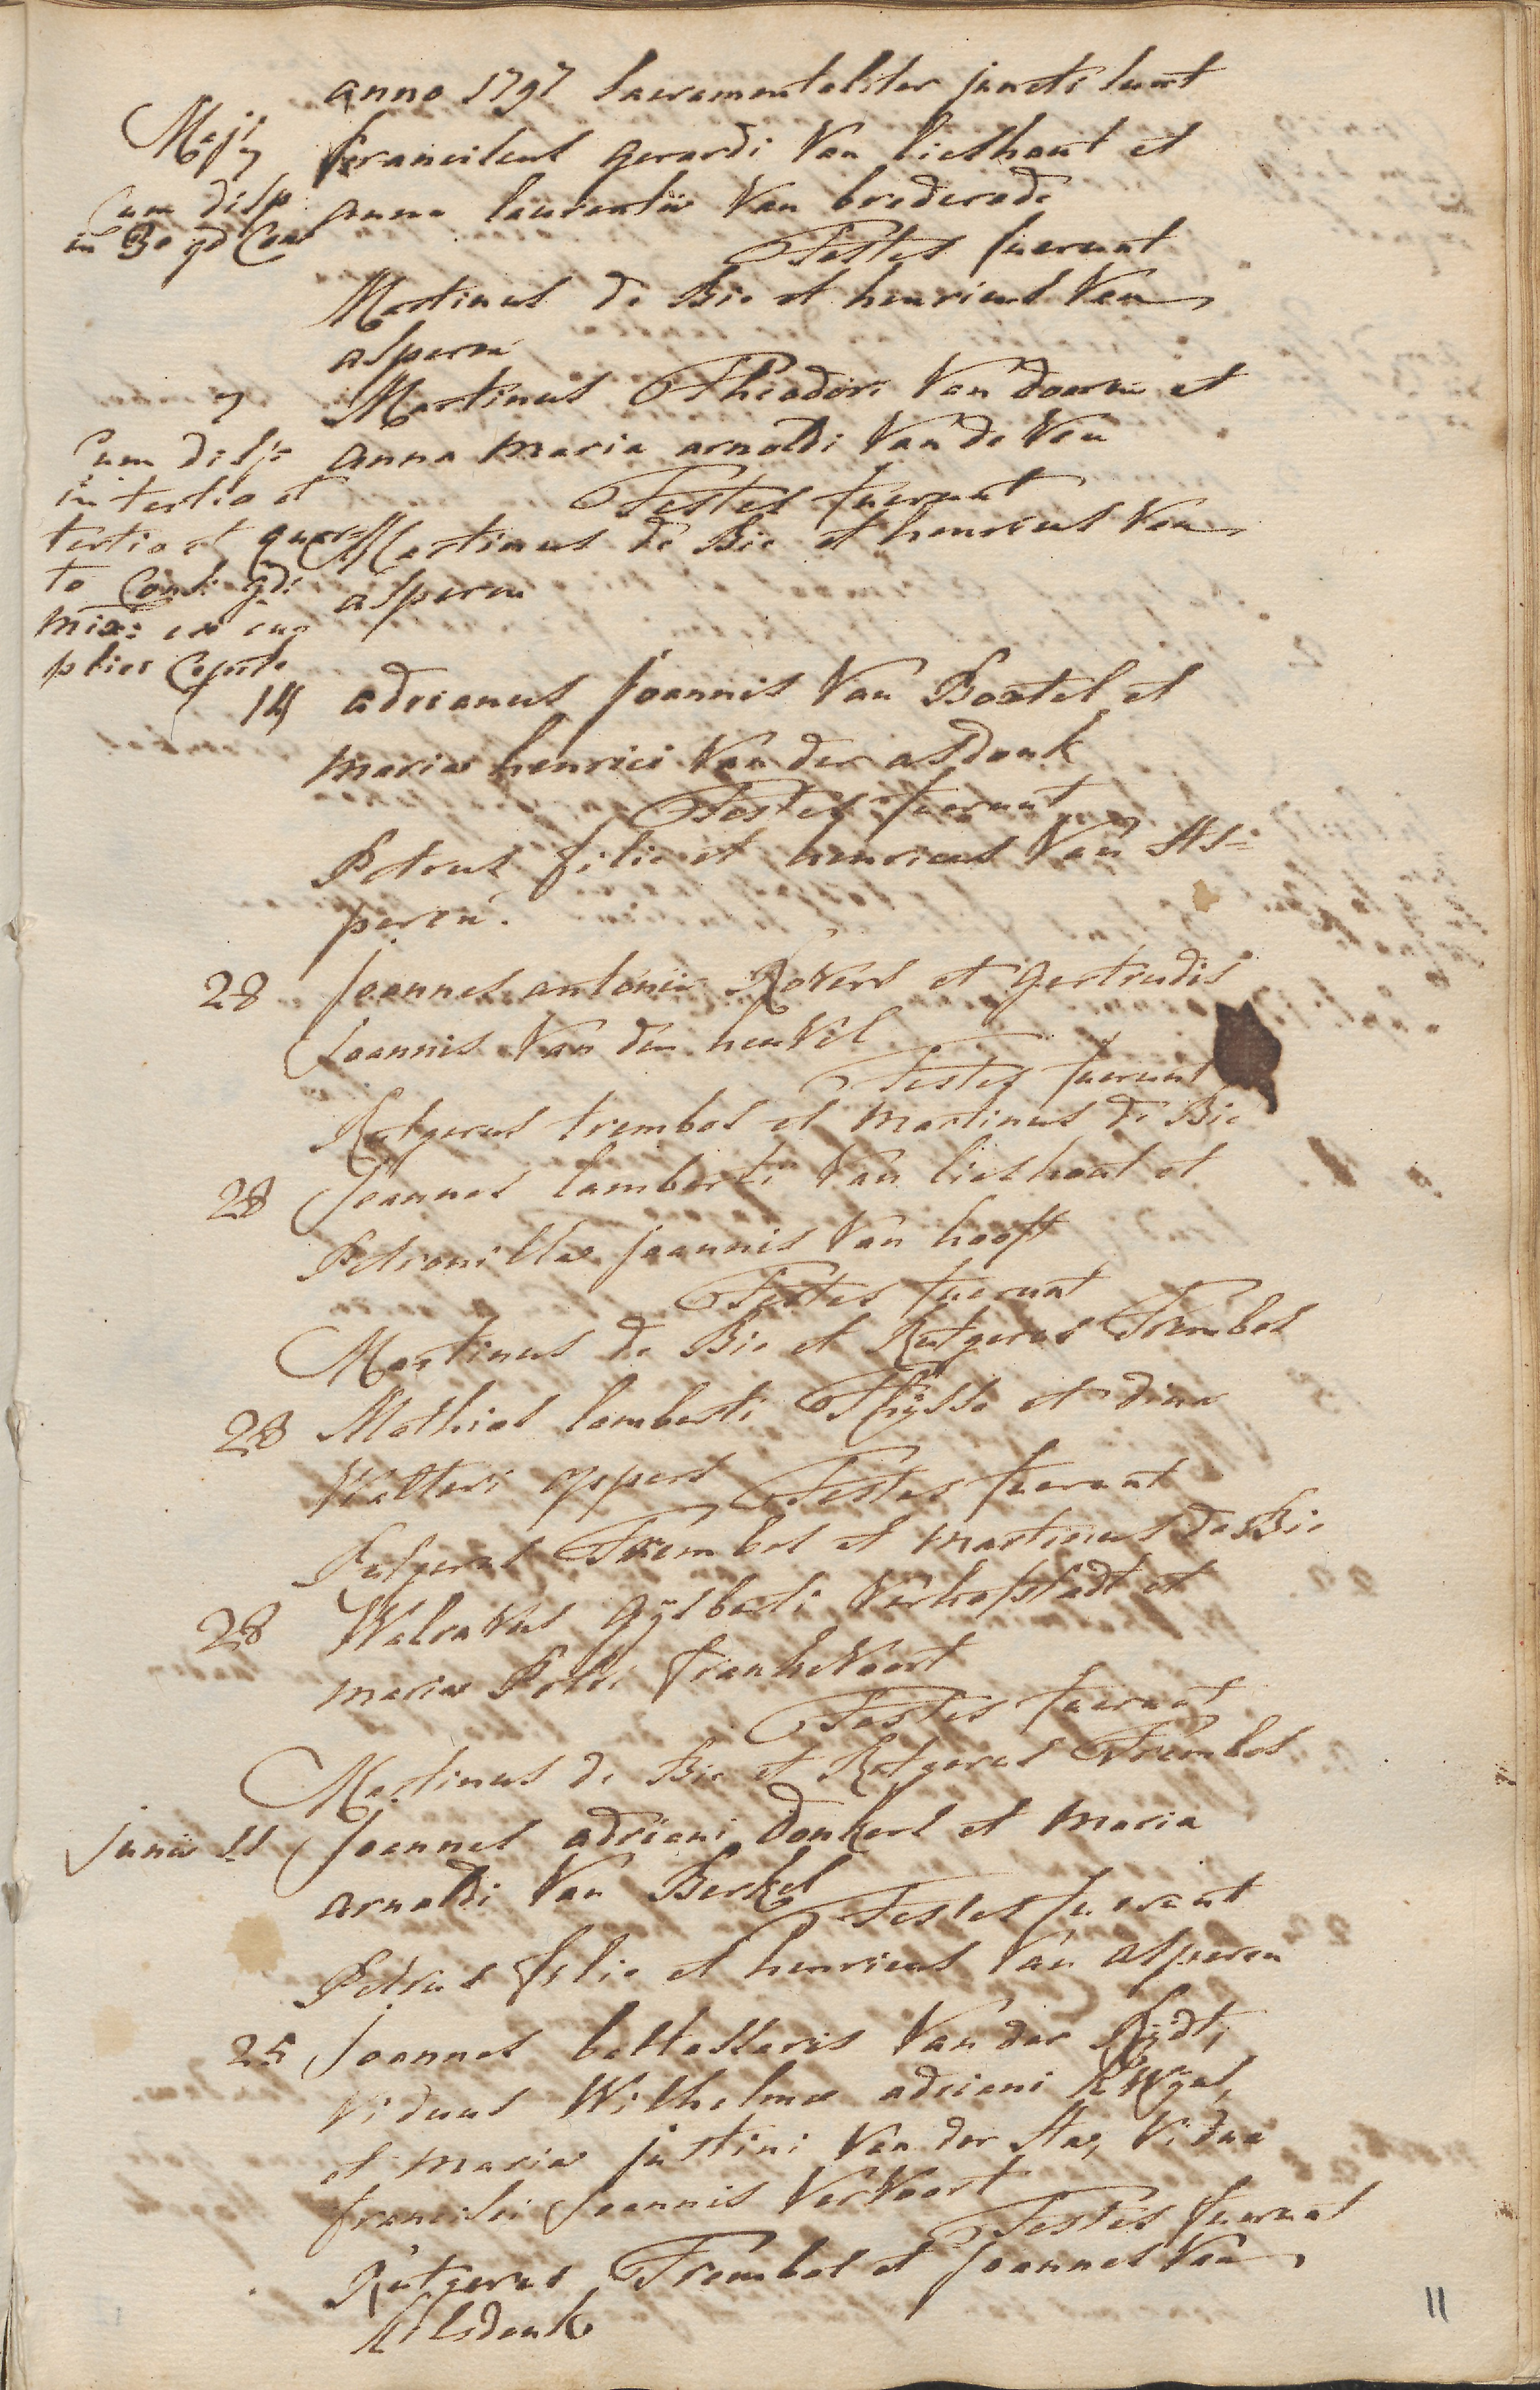 anno 1797 Sacramentaliter juncti sunt
Maji 7 Franciscus gerardi Van lieshout et
Cum disp anna laurentii Van brederode
in 3o gd Con Testes fuerunt
Martinus de Bie et henricus Van
asperen
7 Martinus Theodori Van doorn et
Cum disp anna maria arnoldi Van de Ven
in tertio et Testes fuerunt
tertio et quar Martinus de Bie et henricus Van
to Cons: gdi asperen
mix: ex
plici
14 adrianus Joannis Van Boxtel et
maria henrici Van der asdonk
Testes fuerunt
Petrus filie et henricus Van As-
peren.
28 Joannes antonii Rovers et gertrudis
Joannis Van den heuvel
Testes fuerunt
Rutgerus trembos et martinus de Bie
28 Joannes lamberti Van lieshout et
Petronilla Joannis Van hooft
Testes fuerunt
Martinus de Bie et Rutgerus Trembos
28 Mathias lamberti Thijsse et dina
Walteri oppers Testes fuerunt
Rutgerus Trembos et martinus de Bie
28 Walravus gijsberti Verhofstadt et
maria Petri frankevoort
Testes fuerunt
Martinus de Bie et Rutgerus Trembos
Junii 11 Joannes adriani Donkers et maria
arnoldi Van Berkel
Testes fuerunt
Petrus filie et henricus Van asperen
25 Joannes baltasaris Van der Rijdt,
Viduus Wilhelmæ adriani
et maria justini Van der Aa, Vidua
francisci Joannis Vervoort
Testes fuerunt
Rutgerus Trembos et Joannes Van
Alsdonk
11